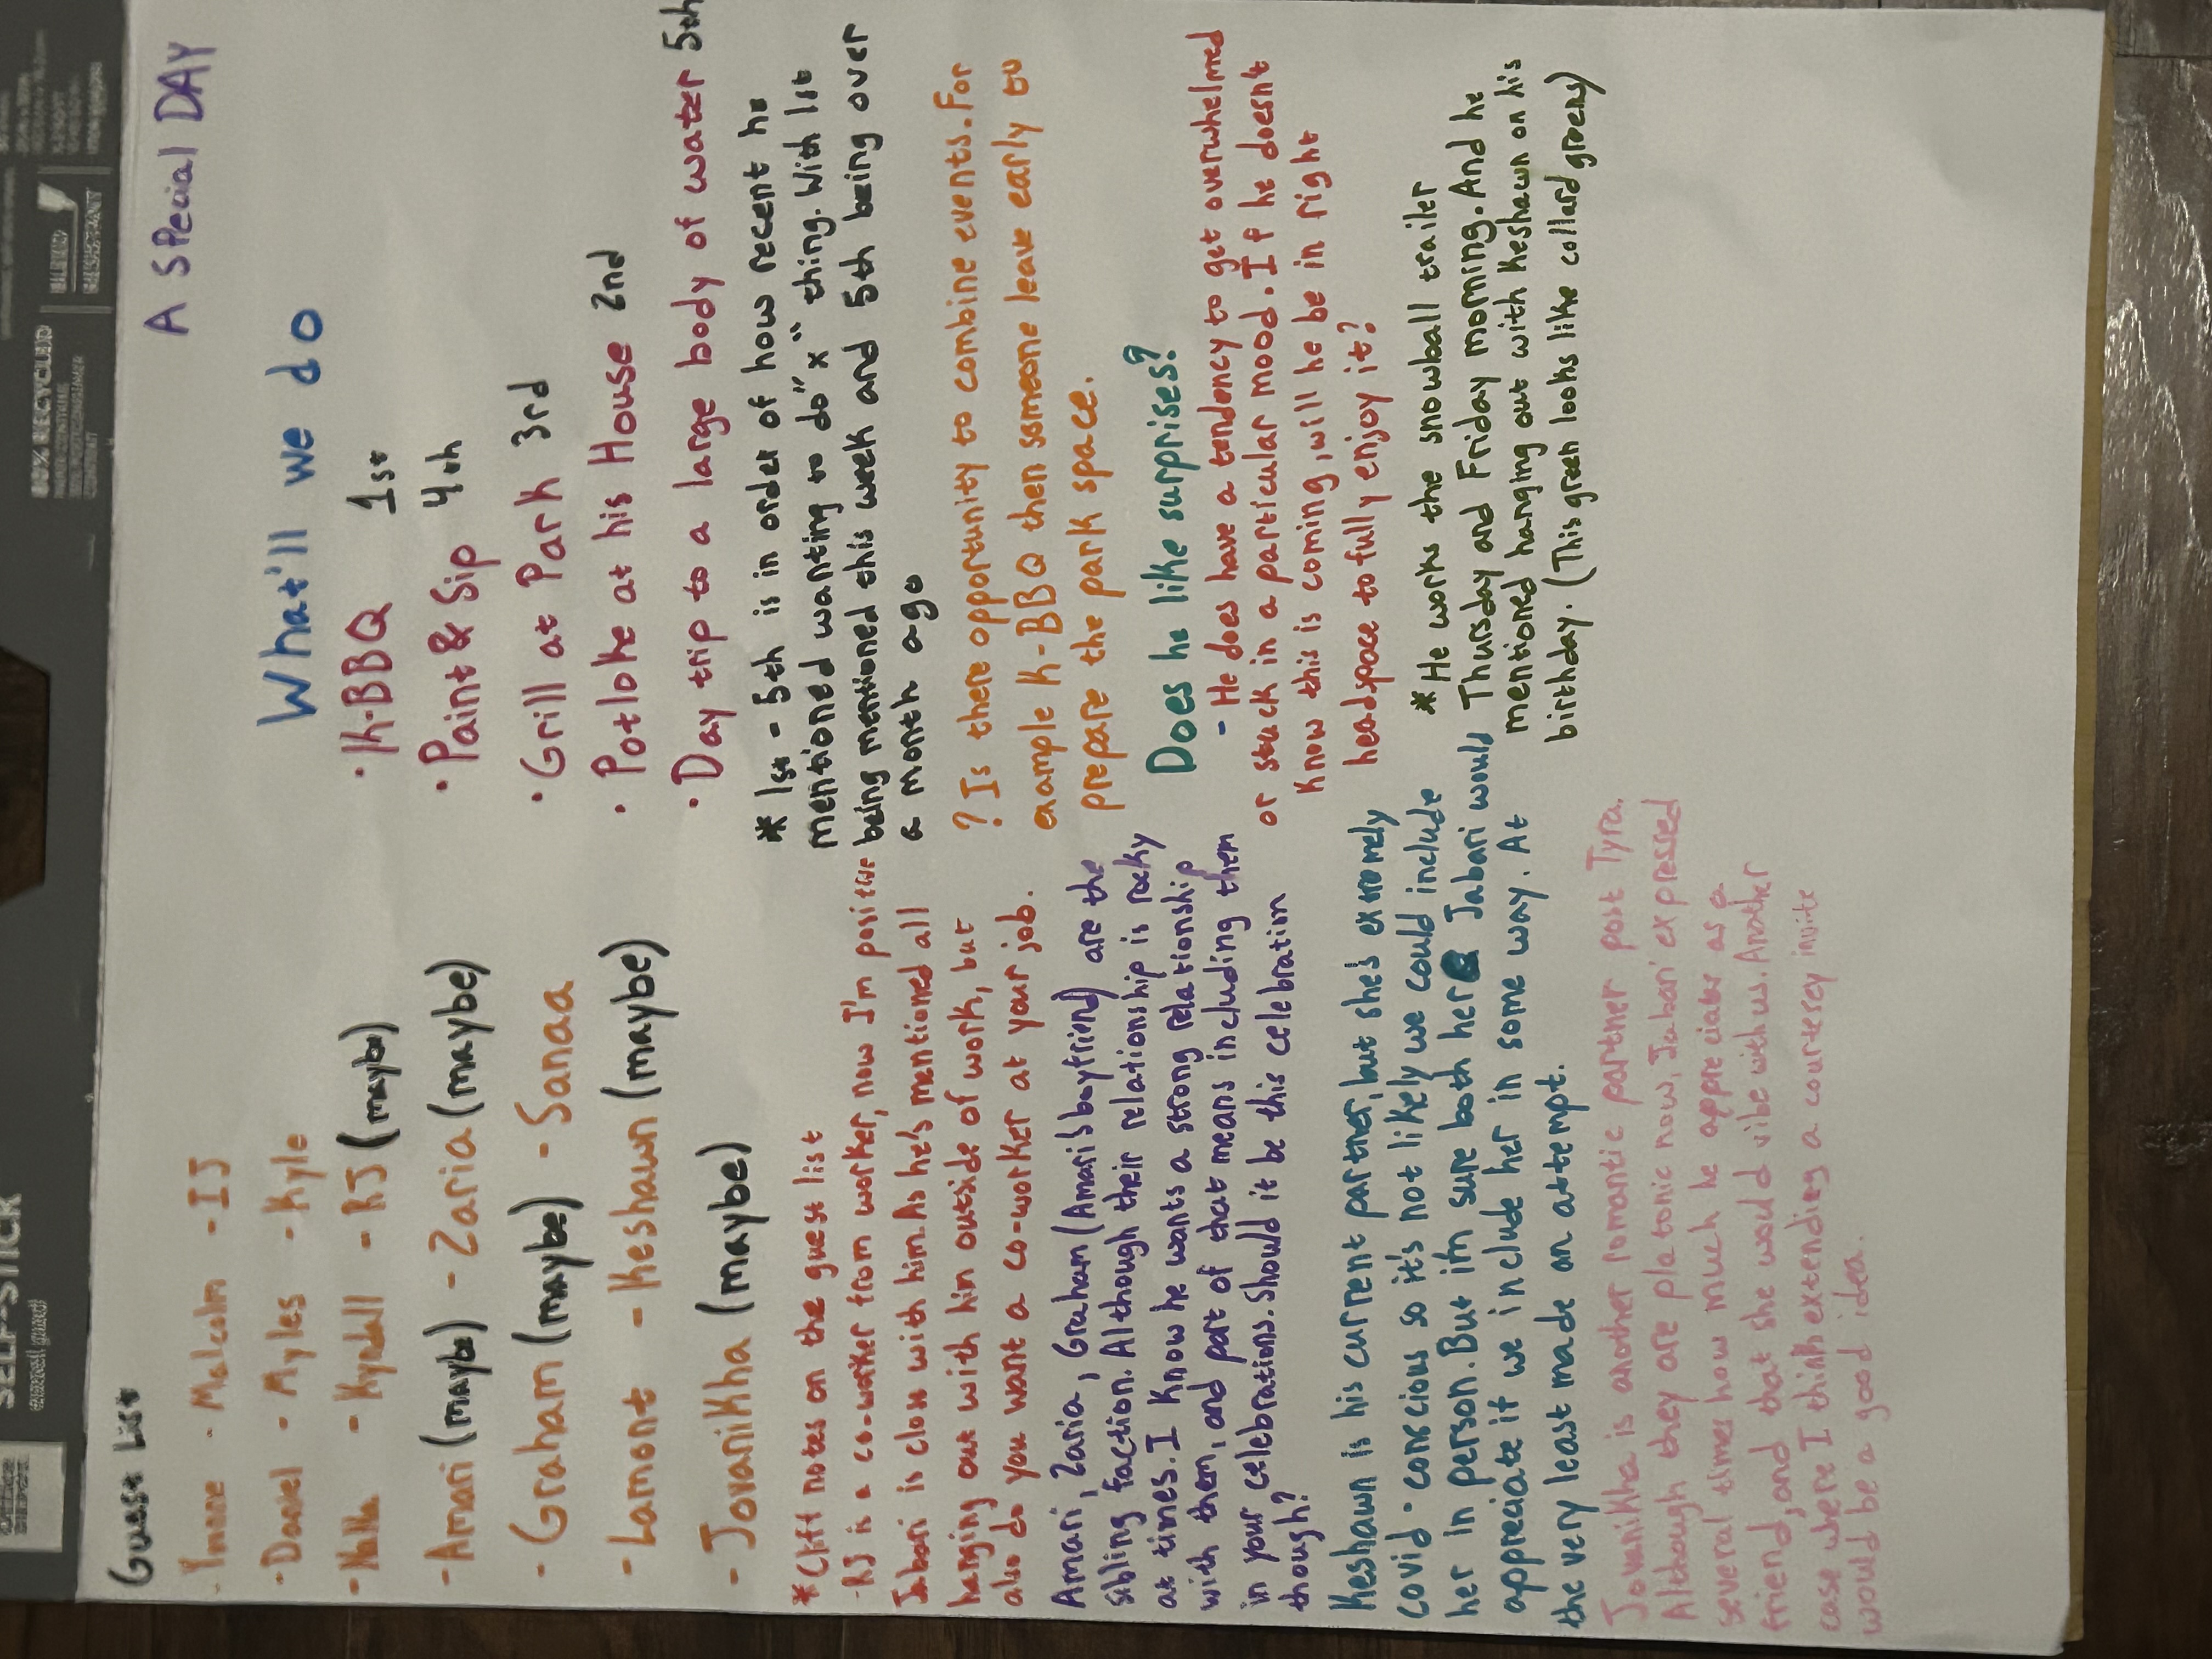 SELF-STICK
easel pad
80% RECYCLED
Guest List
A Special DAY
- Malcolm - IJ
- Daniel - Myles - Kyle
- NaNa - Kyndall - RJ (maybe)
- Amari (maybe) - Zaria (maybe)
- Graham (maybe) - Sanaa
- Lamont - Keshawn (maybe)
- Jovanikha (maybe)
* Cliff notes on the guest list
- RJ is a co-worker from worker, now I'm positive
Jabari is close with him. As he's mentioned all
hanging out with him outside of work, but
also do you want a co-worker at your job.
Amari, Zaria, Graham (Amari's boyfriend) are the
sibling faction. Although their relationship is rocky
at times. I know he wants a strong relationship
with them, and part of that means including them
in your celebrations. Should it be this celebration
though?
Keshawn is his current partner, but she's extremely
covid-conscious so it's not likely we could include
her in person. But im sure both her Jabari would
appreciate if we include her in some way. At
the very least made an attempt.
Jovanikha is another romantic partner post Tyra.
Although they are platonic now, Jabari expressed
several times how much he appreciates as a
friend, and that she would vibe with us. Another
case where I think extending a courtesey invite
would be a good idea.
What'll we do
• K-BBQ 1st
• Paint & Sip 4th
• Grill at Park 3rd
• Potloke at his House 2nd
• Day trip to a large body of water 5th
* 1st - 5th is in order of how recent he
mentioned wanting to do "x" thing. With 1st
being mentioned this week and 5th being over
a month ago
? Is there opportunity to combine events. For
example K-BBQ then someone leave early to
prepare the park space.
Does he like surprises?
- He does have a tendency to get overwhelmed
or stuck in a particular mood. If he doesn't
know this is coming, will he be in right
headspace to fully enjoy it?
* He works the snowball trailer
Thursday and Friday morning. And he
mentioned hanging out with Keshawn on his
birthday. (This green looks like collard greens)